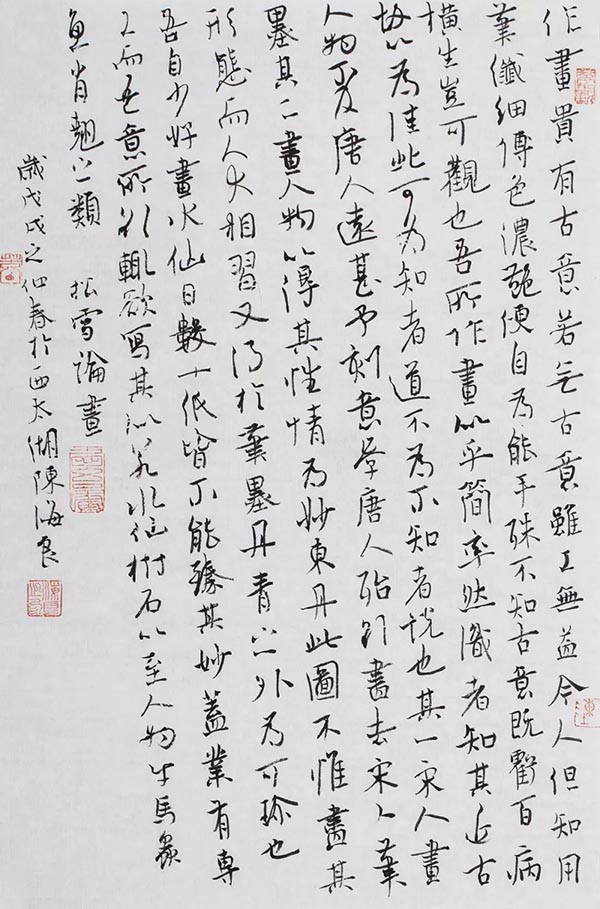 作畫貴有古意若無古意雖工無益今人但知用
筆纖細傅色濃艷便自為能手殊不知古意既虧百病
橫生豈可觀也吾所作畫似乎簡率然識者知其近古
故以為佳此可為知者道不為不知者說也其一宋人畫
人物不及唐人遠甚予刻意學唐人殆欲盡去宋人筆
墨其二畫人物以得其性情為妙東丹此圖不惟盡其
形態而人犬相習又得於筆墨丹青之外為可珍也
吾自少好畫水仙日數十紙皆不能臻其妙蓋業有專
工而吾意所欲輒欲寫其似若水仙樹石以至人物牛馬虫
魚肖翹之類 松雪論畫
歲戊戌之仲春於西太湖陳海良